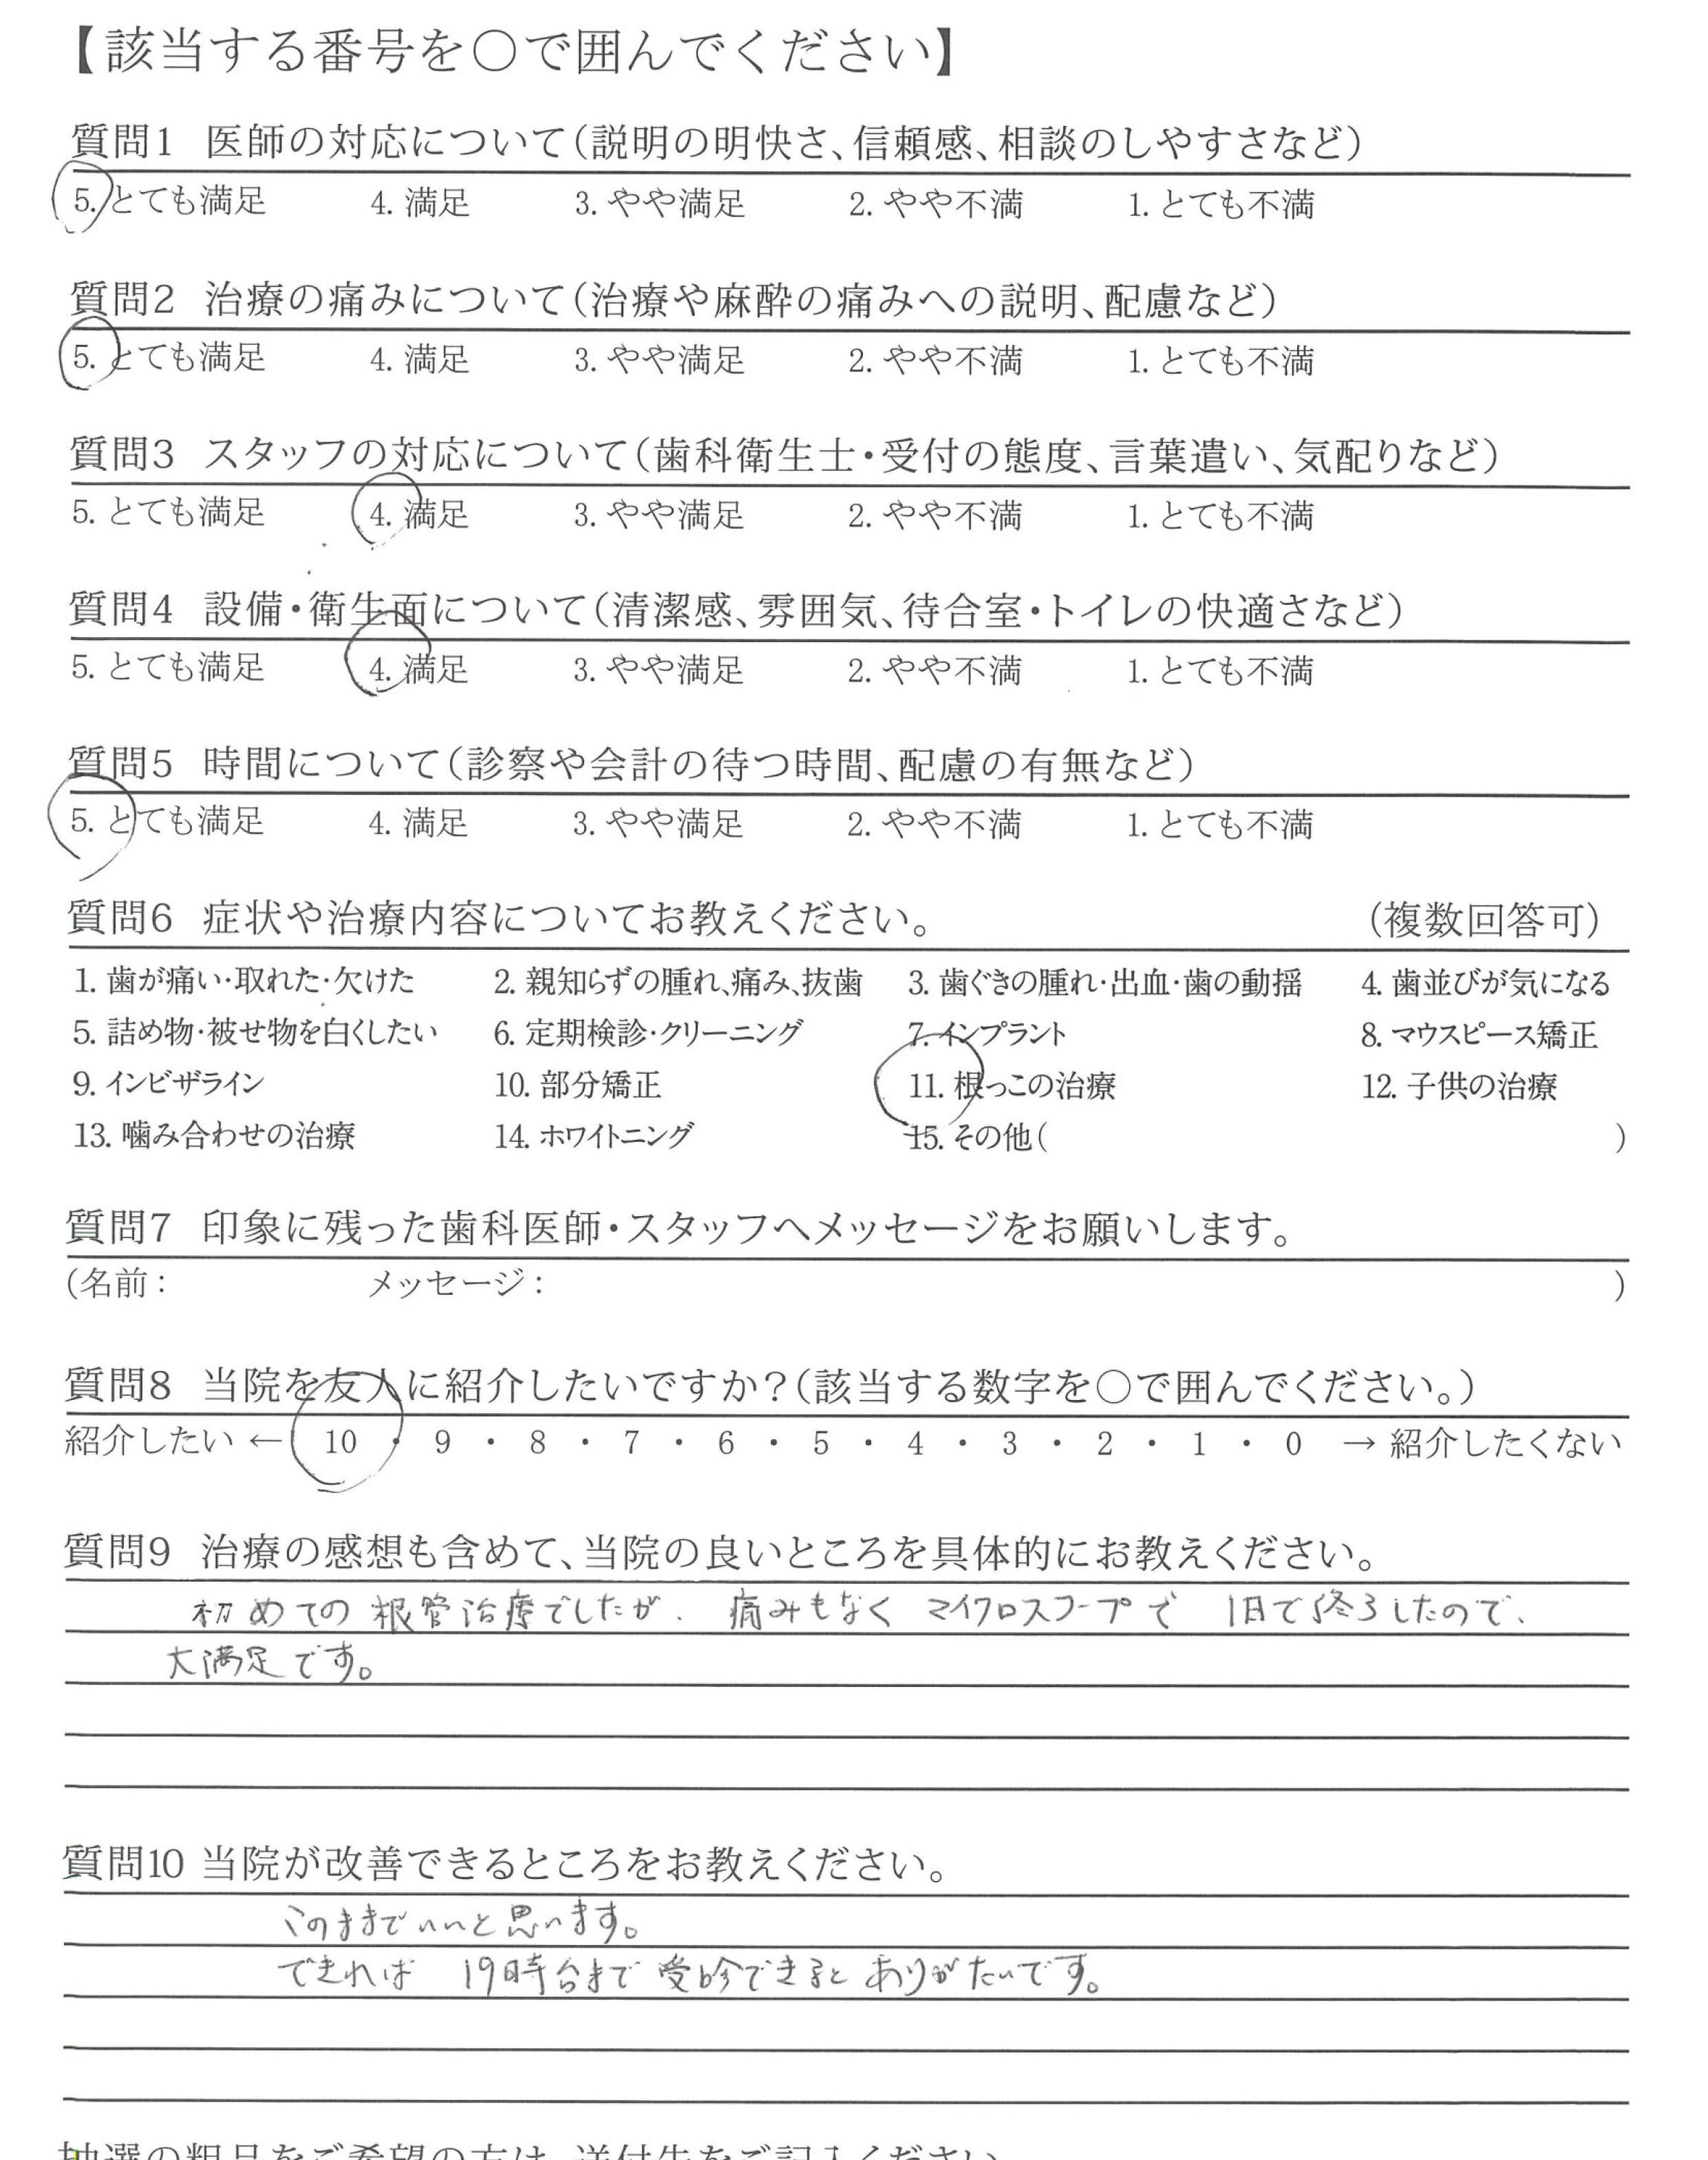 【該当する番号を〇で囲んでください】
質問1 医師の対応について(説明の明快さ、信頼感、相談のしやすさなど)
5. とても満足 4. 満足 3. やや満足 2. やや不満 1. とても不満
質問2 治療の痛みについて(治療や麻酔の痛みへの説明、配慮など)
5. とても満足 4. 満足 3. やや満足 2. やや不満 1. とても不満
質問3 スタッフの対応について(歯科衛生士・受付の態度、言葉遣い、気配りなど)
5. とても満足 4. 満足 3. やや満足 2. やや不満 1. とても不満
質問4 設備・衛生面について(清潔感、雰囲気、待合室・トイレの快適さなど)
5. とても満足 4. 満足 3. やや満足 2. やや不満 1. とても不満
質問5 時間について(診察や会計の待つ時間、配慮の有無など)
5. とても満足 4. 満足 3. やや満足 2. やや不満 1. とても不満
質問6 症状や治療内容についてお教えください。 (複数回答可)
1. 歯が痛い・取れた・欠けた 2. 親知らずの腫れ、痛み、抜歯 3. 歯ぐきの腫れ・出血・歯の動揺 4. 歯並びが気になる
5. 詰め物・被せ物を白くしたい 6. 定期検診・クリーニング 7. インプラント 8. マウスピース矯正
9. インビザライン 10. 部分矯正 11. 根っこの治療 12. 子供の治療
13. 噛み合わせの治療 14. ホワイトニング 15. その他( )
質問7 印象に残った歯科医師・スタッフへメッセージをお願いします。
(名前: メッセージ: )
質問8 当院を友人に紹介したいですか?(該当する数字を〇で囲んでください。)
紹介したい ← 10 ・ 9 ・ 8 ・ 7 ・ 6 ・ 5 ・ 4 ・ 3 ・ 2 ・ 1 ・ 0 → 紹介したくない
質問9 治療の感想も含めて、当院の良いところを具体的にお教えください。
初めての根管治療でしたが、痛みもなくマイクロスコープで 1日で終了したので、
大満足です。
質問10 当院が改善できるところをお教えください。
このままでいいと思います。
できれば 19時台まで受診できるとありがたいです。
抽選の粗品をご希望の方は、送付先をご記入ください